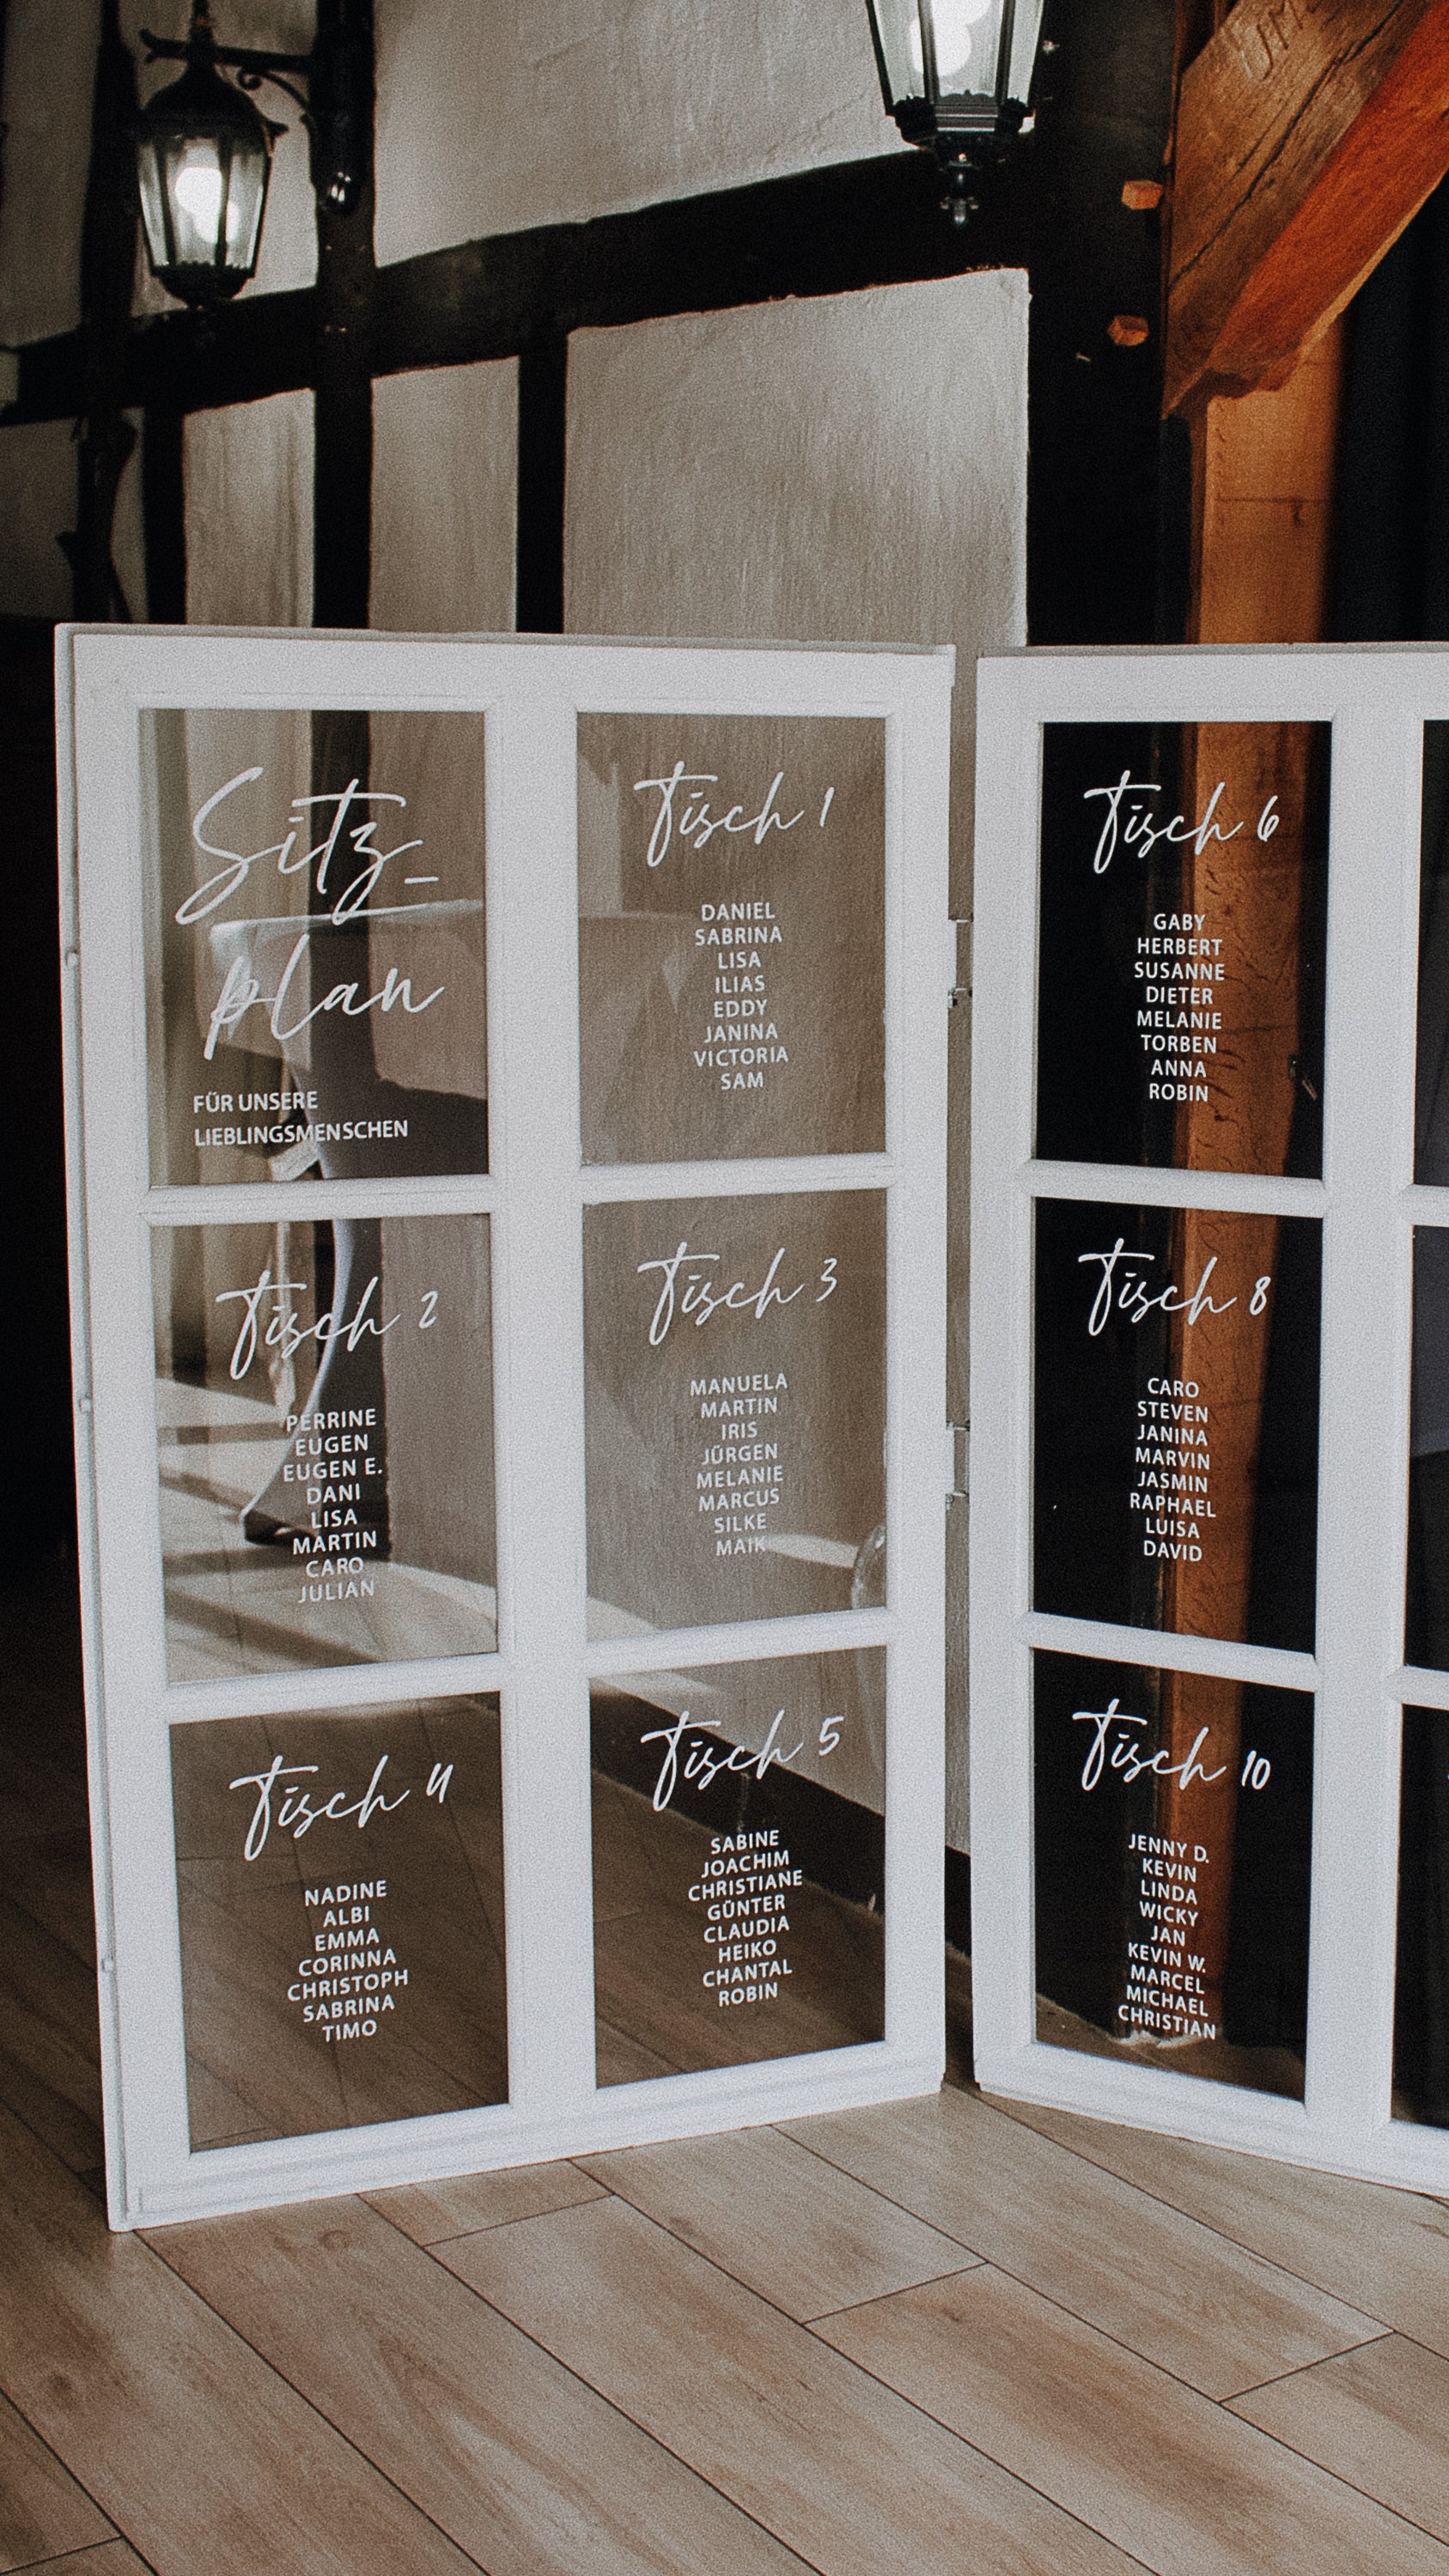 Sitz-
plan
FÜR UNSERE
LIEBLINGSMENSCHEN
Tisch 1
DANIEL
SABRINA
LISA
ILIAS
EDDY
JANINA
VICTORIA
SAM
Tisch 2
PERRINE
EUGEN
EUGEN E.
DANI
LISA
MARTIN
CARO
JULIAN
Tisch 3
MANUELA
MARTIN
IRIS
JÜRGEN
MELANIE
MARCUS
SILKE
MAIK
Tisch 4
NADINE
ALBI
EMMA
CORINNA
CHRISTOPH
SABRINA
TIMO
Tisch 5
SABINE
JOACHIM
CHRISTIANE
GÜNTER
CLAUDIA
HEIKO
CHANTAL
ROBIN
Tisch 6
GABY
HERBERT
SUSANNE
DIETER
MELANIE
TORBEN
ANNA
ROBIN
Tisch 8
CARO
STEVEN
JANINA
MARVIN
JASMIN
RAPHAEL
LUISA
DAVID
Tisch 10
JENNY D.
KEVIN
LINDA
WICKY
JAN
KEVIN W.
MARCEL
MICHAEL
CHRISTIAN